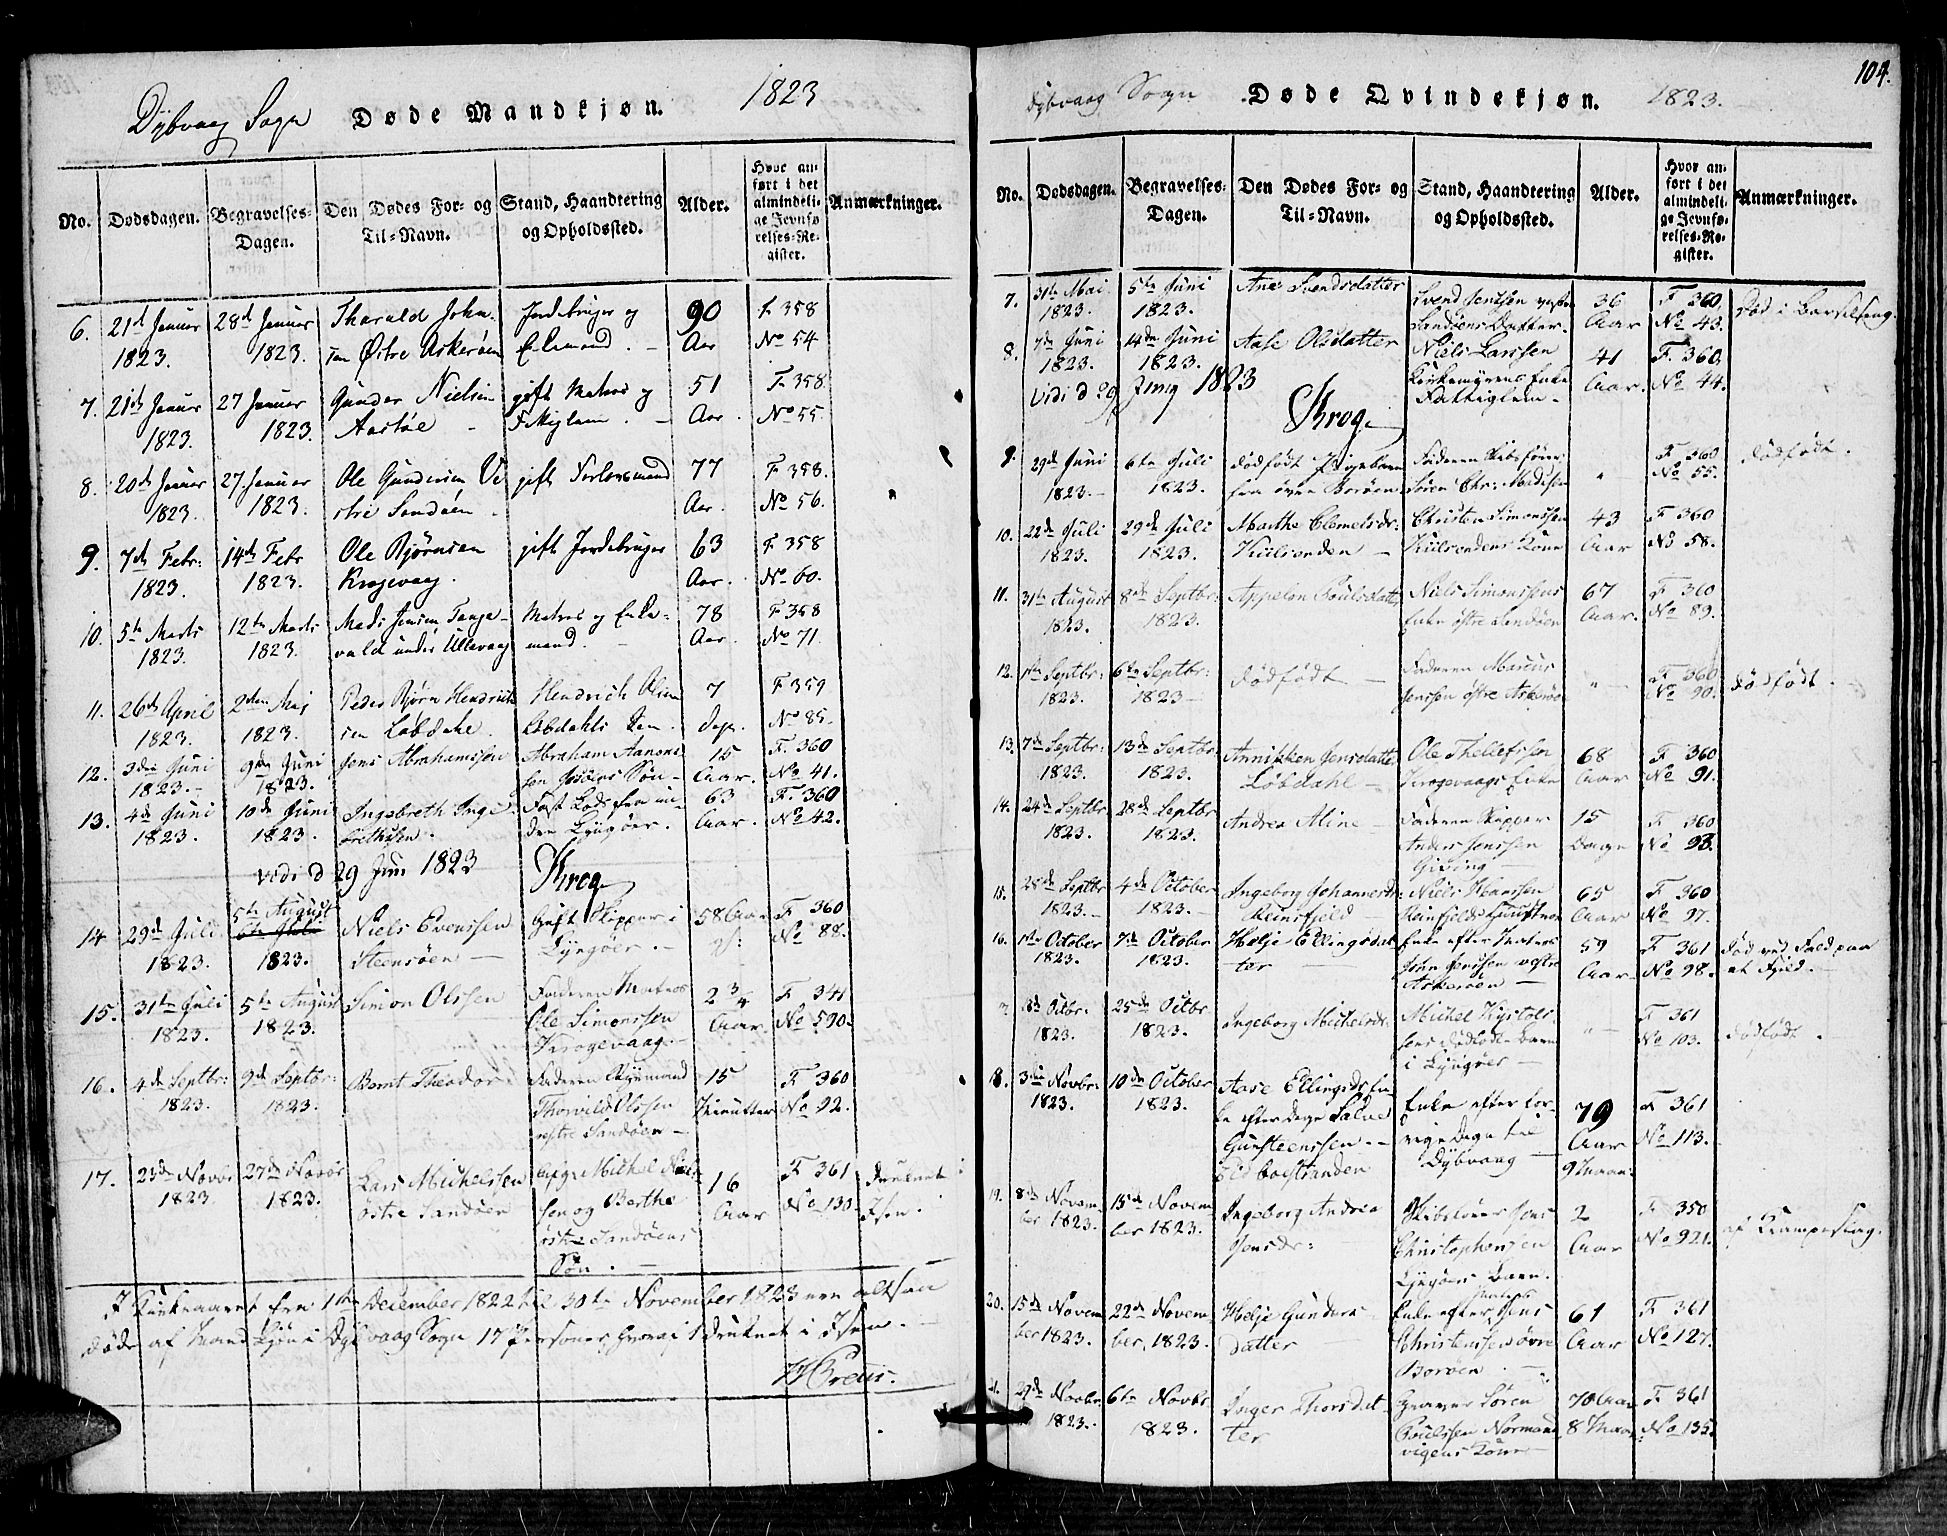 Dybvaag Sogn Døde Mandkjøn. 1823
No. Dødsdagen. Begravelses-Dagen. Den Dødes For- og Til-Navn. Stand, Haandtering og Opholdssted. Alder. Hvor anført i det almindelige Jevnførelses-Register. Anmærkninger.
6. 21de Januar 1823. 28de Januar 1823. Tharald John- Østre Askerøen Jordebruger og Enkemand. 90 Aar F 358 No 54
7. 21de Januar 1823. 27 Januar 1823. Gunder Nielsen Aastøe gift Matros og 51 Aar. F. 358 No 55.
8. 20de Januar 1823. 27 Januar 1823. Ole Gundersen Vestre Sandøen. gift 77 Aar. F 358. No 56.
9. 7de Febr: 1823. 14de Febr 1823. Ole Bjørnsen Krogevaag. gift Jordebruger 63 Aar. F 358 No 60.
10. 5te Marts 1823. 12te Marts 1823. Mads Jensen Tangevald under Ullevaag Matros og Enkemand. 78 Aar. F 358 No 71.
11. 26de April 1823. 2den Maj 1823. Peder Bjørn HendrichsenLøbdahl. Hendrich Olsen Løbdahls Søn. 7 Dage. F 359 No 85.
12. 3die Juni 1823. 9de Juni 1823. Jens Abrahamssen Abraham Aanonsen Søn 15 Aar. F. 360 No 41.
13. 4de Juni 1823. 10de Juni 1823. Ingebreth Ingebrethsen. Fast Lods fra Lyngøer. 63 Aar. F. 360 No 42.
vidi d 29 Juni 1823 Krog
14 29de Juli 1823. 5te August 1823. Niels Evenssen Steensøen Gift Skipper i Lyngøer. 58 Aar F 360 No 88.
15. 31te Juli 1823. 5te August 1823. Simon Olssen Faderen Matros Ole Simonssen Krogevaag. 2 3/4 Aar. F 341 No 590.
16. 4de Septbr: 1823. 9de Septbr: 1823. Bernt Theodor Faderen Thorvild Olssen vestre Sandøen 15 Minutter F 360 No 92.
17. 23de Novbr 1823. 27de Novbr 1823. Lars Michelssen østre Sandøen Michel Nielsen og Berthe østre Sandøens Søn. 16 Aar F 361 No 130. Druknet i Isen.
I Kirkeaaret fra 1te December 1822 til 30te November 1823 ere altsaa
døde af Mandkjøn i Dybvaag Sogn 17 Personer, hvoraf 1 druknet i Isen.
104.
Dybvaag Sogn Døde Qvindekjøn. 1823.
No. Dødsdagen. Begravelses-Dagen. Den Dødes For- og Til-Navn. Stand, Haandtering og Opholdssted. Alder. Hvor anført i det almindelige Jevnførelses-Register. Anmærkninger.
7. 31te Mai 1823. 5te Juni 1823. Ane Svendsdatter Svend Jensen vestre Sandøens Datter. 36 Aar F 360 No 43. Død i Barselseng.
8. 7de Juni 1823. 14de Juni 1823. Aase Olsdatter Niels Larssen Kirkemyrens Enke Fattiglem 41 Aar. F. 360. No 44.
vidi d 29 Juny 1823 Krog
9. 29de Juni 1823. 6te Juli 1823. dødfødt Pigebarn fra øvre Borøen Faderen Skibsfører Søren Chr: Madssen F 360 No 55. Dødfødt.
10. 22de Juli 1823. 29de Juli 1823. Marthe Clemetsdr: Kiilsenden Christen Simonssen Kiilsendens Kone 43 Aar F 360 No 58.
11. 31te August 1823. 8de Septbr: 1823. Appelon Poulsdatter Niels Simonssens Enke østre Sandøen 67 Aar. F 360 No 89.
12. 1ste Septbr: 1823. 6te Septbr: 1823 Dødfødt Faderen Marcus Jenssen østre Askerøen F 360 No 90. Dødfødt
13. 7de Septbr: 1823. 13de Septbr: 1823. Annikken Jensdatter Løbdahl Ole Thellefssen Krogevaags Enke 68 Aar F 360 No 91.
14. 24de Septbr 1823. 28de Septbr 1823. Andrea Aline Faderen Skipper Anders Jenssen Gieving 15 Dage F 360 No 93.
15. 28de Septbr 1823. 4de October 1823. Ingeborg Johannesdr Reinsfjeld Niels Hanssen Reinsfjelds 65 Aar F 360 No 97.
16. 1ste October 1823. 7de October 1823. Helje Ellingsdatter Enke efter Matros John Jenssen vestre Askerøen 59 Aar. F 361 No 98. Død ved Fald paa et Fjeld.
18de Octbr. 1823. 25de Octbr 1823. Ingeborg Michelsdr: Michel Dødfødte Barn i Lyngøer F 361 No 103. Dødfødt.
18. 3die Novbr: 1823. 10de October 1823. Aase Ellingsdr Enke efter Salve Gunsteenssen Eidbostranden Enke efter forrige til Dybvaag 79 Aar 9 Maan: F 361 No 113.
19. 8de November 1823. 15de November 1823. Ingeborg Andrea Jensdr: Jens Christophersen Lyngøer Barn. 2 Aar F 350 No 921. af Krampeslag.
20. 15de November 1823. 22de November, 1823. Helje Gundersdatter Enke efter Jens Christenssen øvre Borøen. 61 Aar F 361 No 127.
21. 29de Novbr 1823. 6te Novbr 1823. Inger Thorsdatter Søren Poulssen Normandvigens Kone 70 Aar 8 Maan F 361 No 135.